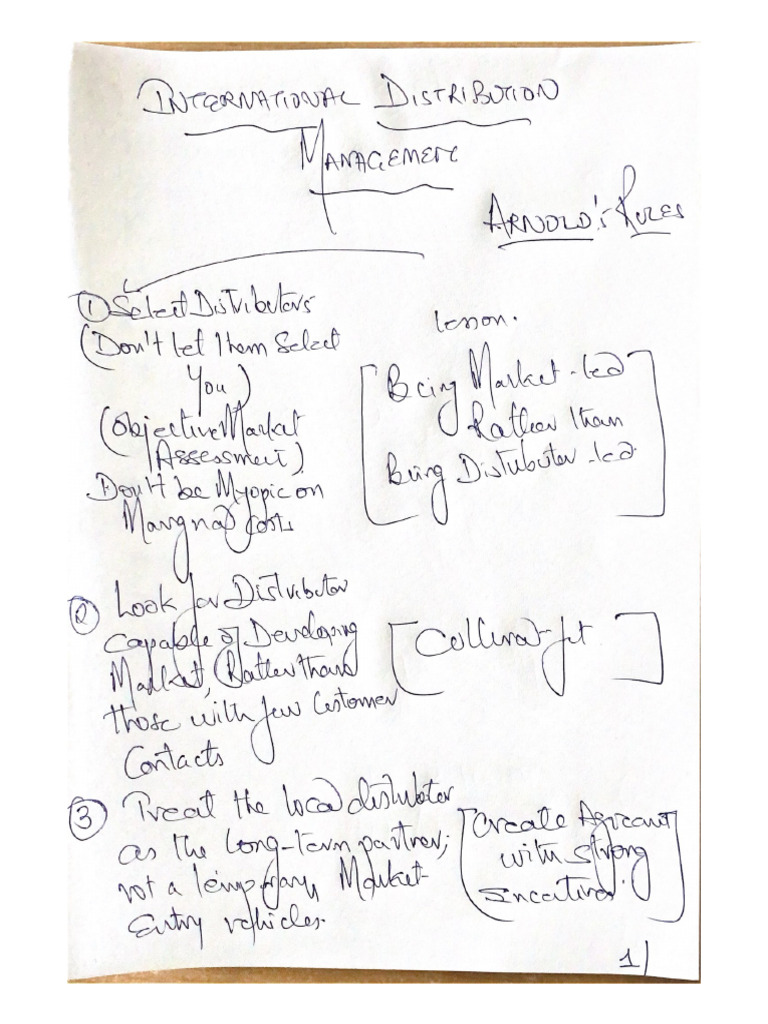 INTERNATIONAL DISTRIBUTION
MANAGEMENT
ARNOLD's RULES
① Select Distributors
(Don't let them select
You)
(Objective Market
Assessment)
Don't be Myopic on
Marginal Costs
lesson.
[Being Market-led
Rather than
Being Distributor-led]
② Look for Distributor
capable of Developing
Market, Rather than
those with few Customer
Contacts
[Cultural-fit]
③ Treat the local distributor
as the long-term partner,
not a temporary Market-
Entry vehicles.
[Create Agreement
with strong
incentives.]
1/